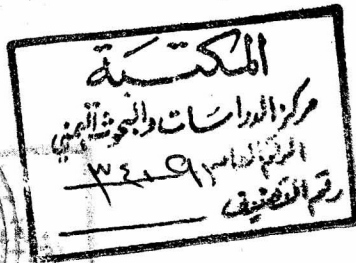 المكتبة
مركز الدراسات والبحوث اليمني
الرقم العام ٣٤٠٩
رقم التصنيف